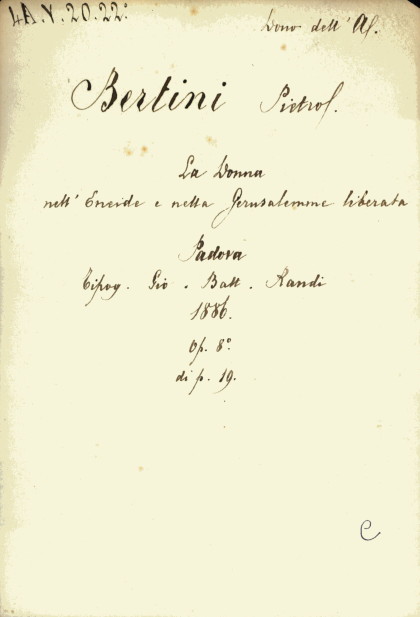 4A.V.20.22.
Dono dell' A.
Bertini Pietro.
La Donna
nell' Eneide e nella Gerusalemme liberata
Padova
Tipog. Gio. Batt. Randi
1886.
Op. 8°
di p. 19.
C